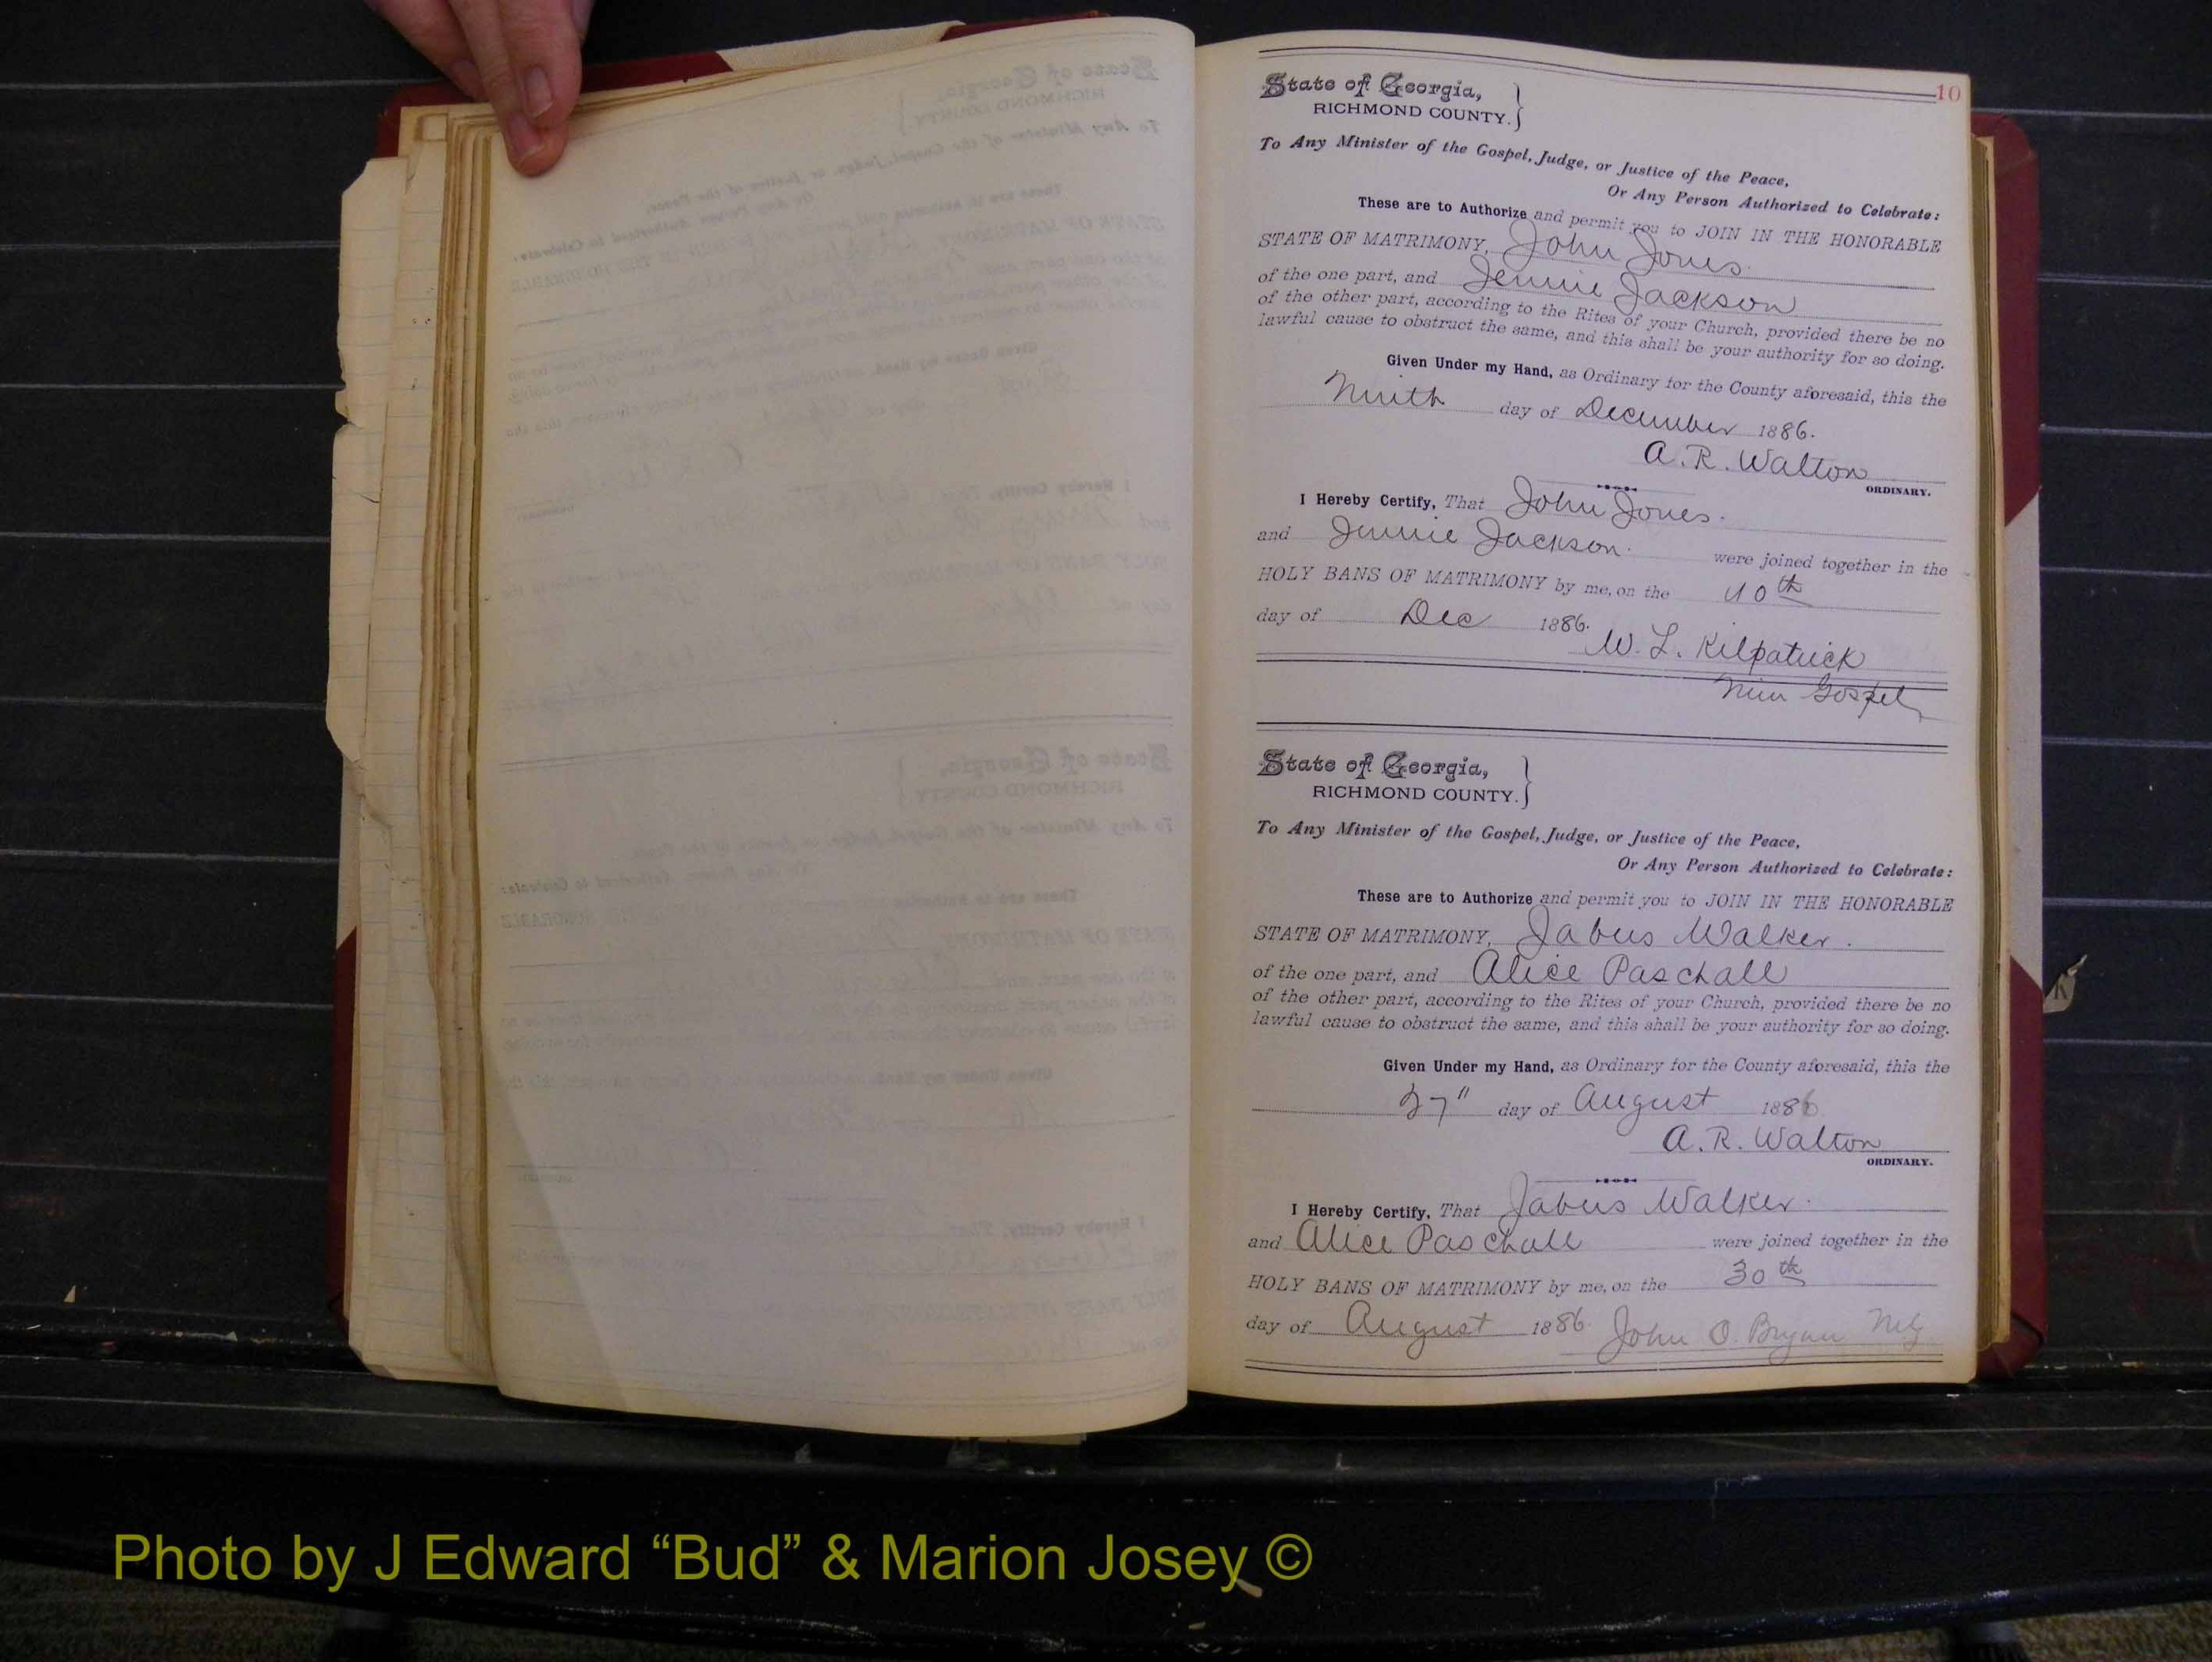 10
State of Georgia,
RICHMOND COUNTY.
To Any Minister of the Gospel, Judge, or Justice of the Peace,
Or Any Person Authorized to Celebrate:
These are to Authorize and permit you to JOIN IN THE HONORABLE
STATE OF MATRIMONY, John Jones.
of the one part, and Jennie Jackson
of the other part, according to the Rites of your Church, provided there be no
lawful cause to obstruct the same, and this shall be your authority for so doing.
Given Under my Hand, as Ordinary for the County aforesaid, this the
Ninth day of December 1886.
A. R. Walton
ORDINARY.
I Hereby Certify, That John Jones.
and Jennie Jackson. were joined together in the
HOLY BANS OF MATRIMONY by me, on the 10th
day of Dec 1886.
W. L. Kilpatrick
Min Gospel
State of Georgia,
RICHMOND COUNTY.
To Any Minister of the Gospel, Judge, or Justice of the Peace,
Or Any Person Authorized to Celebrate:
These are to Authorize and permit you to JOIN IN THE HONORABLE
STATE OF MATRIMONY, Jabus Walker.
of the one part, and Alice Paschall
of the other part, according to the Rites of your Church, provided there be no
lawful cause to obstruct the same, and this shall be your authority for so doing.
Given Under my Hand, as Ordinary for the County aforesaid, this the
27" day of August 1886
A. R. Walton
ORDINARY.
I Hereby Certify, That Jabus Walker.
and Alice Paschall were joined together in the
HOLY BANS OF MATRIMONY by me, on the 30th
day of August 1886. John O. Bryan MG
Photo by J Edward “Bud” & Marion Josey ©